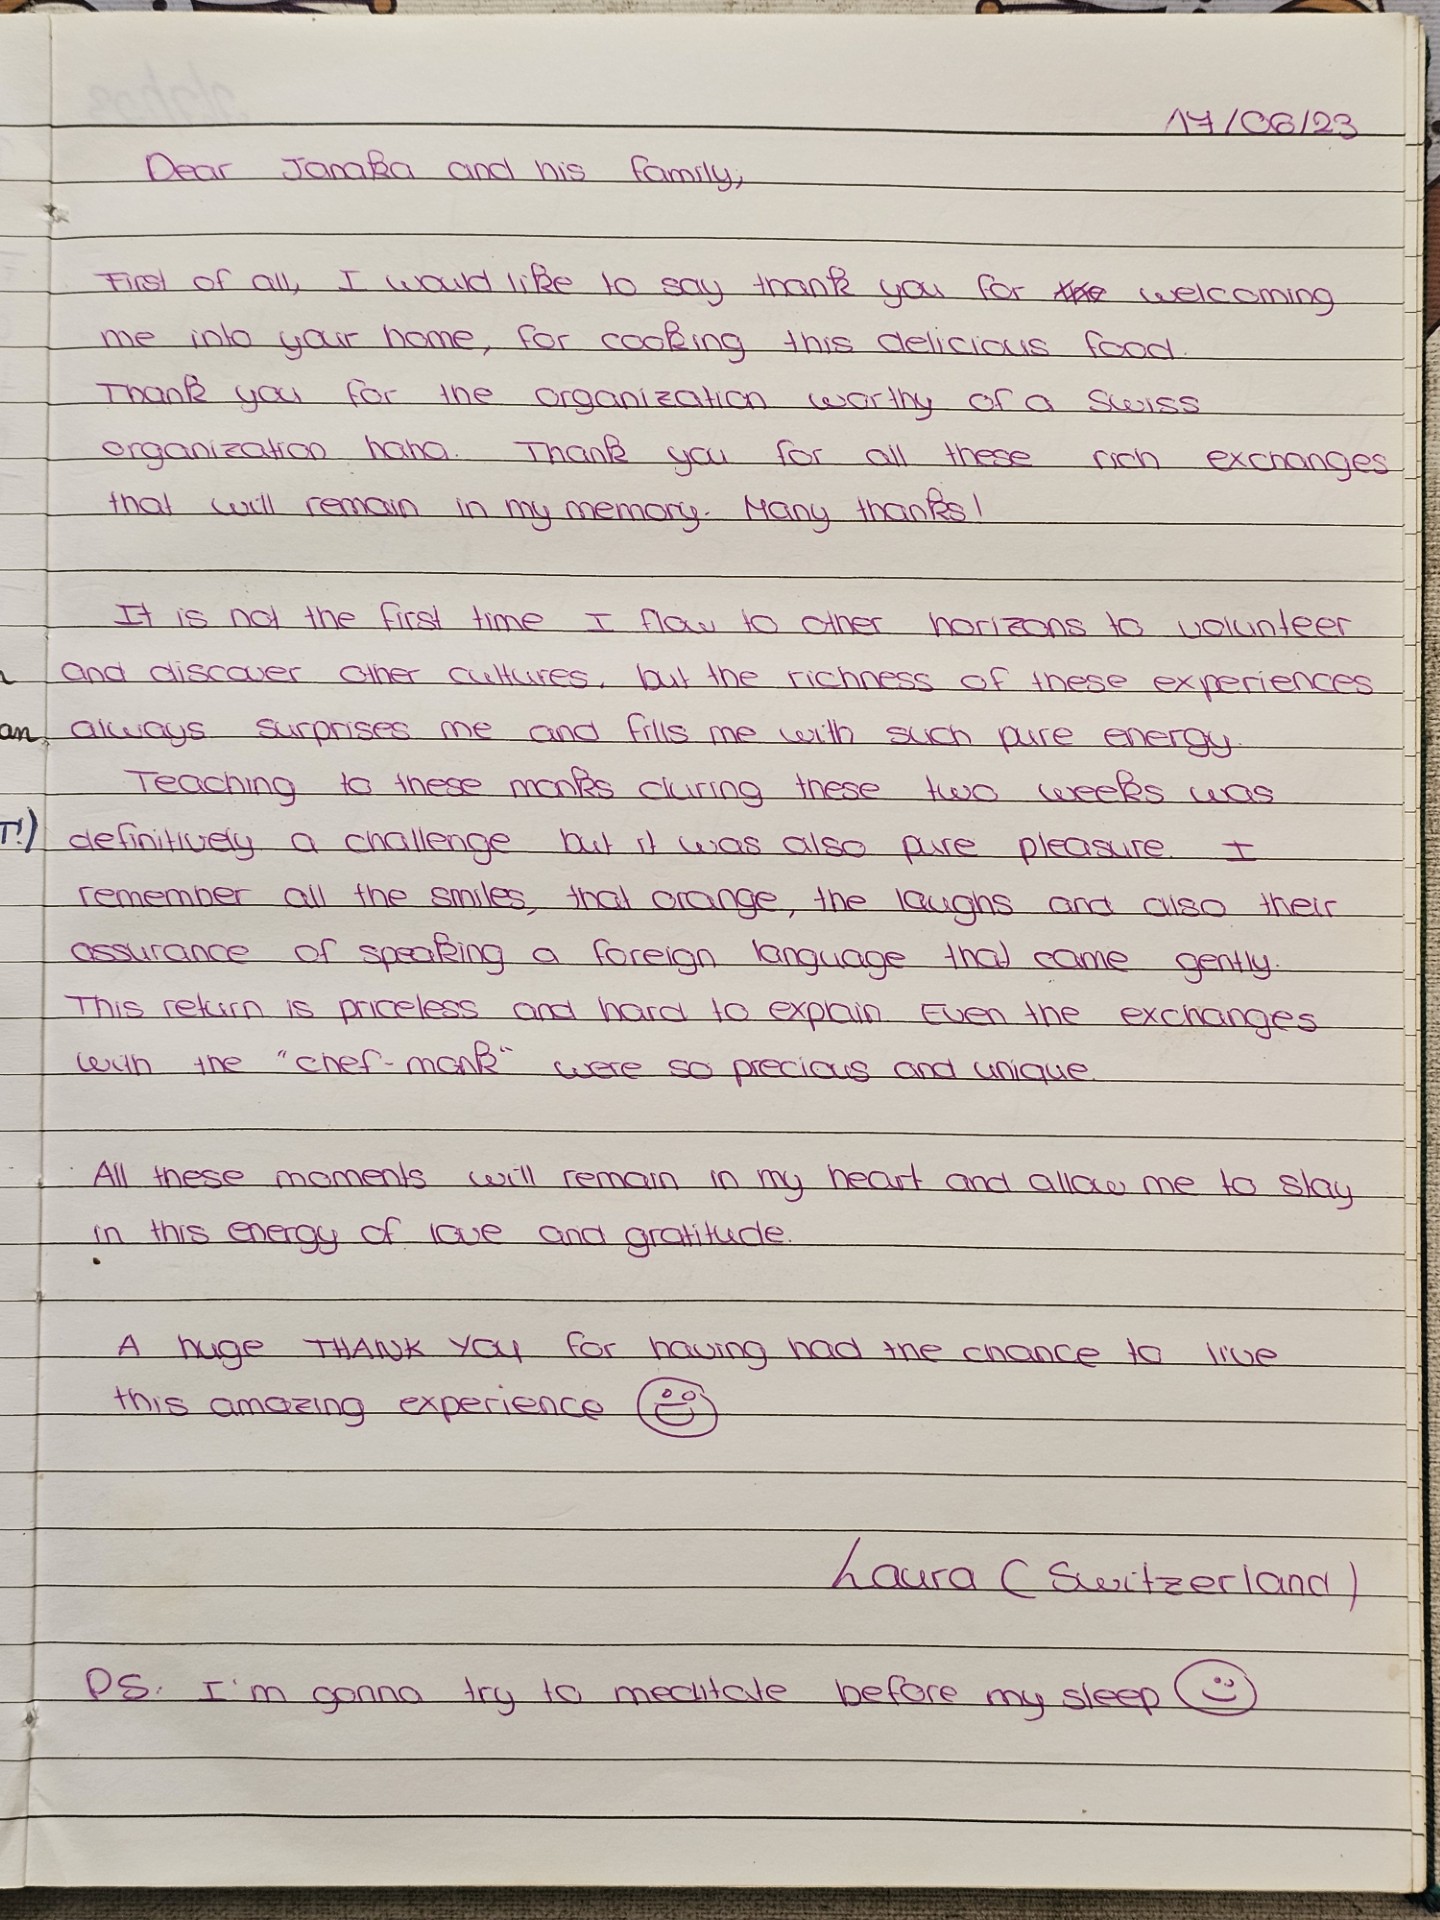 17/06/23
Dear Janaka and his family,
First of all, I would like to say thank you for the welcoming
me into your home, for cooking this delicious food.
Thank you for the organization worthy of a Swiss
organization haha. Thank you for all these rich exchanges
that will remain in my memory. Many thanks!
It is not the first time I flow to other horizons to volunteer
and discover other cultures, but the richness of these experiences
an always surprises me and fills me with such pure energy.
Teaching to these monks during these two weeks was
T!) definitively a challenge but it was also pure pleasure. I
remember all the smiles, that orange, the laughs and also their
assurance of speaking a foreign language that came gently.
This return is priceless and hard to explain. Even the exchanges
with the "chef-monk" were so precious and unique.
All these moments will remain in my heart and allow me to stay
in this energy of love and gratitude.
A huge THANK YOU for having had the chance to live
this amazing experience
Laura (Switzerland)
PS. I'm gonna try to meditate before my sleep